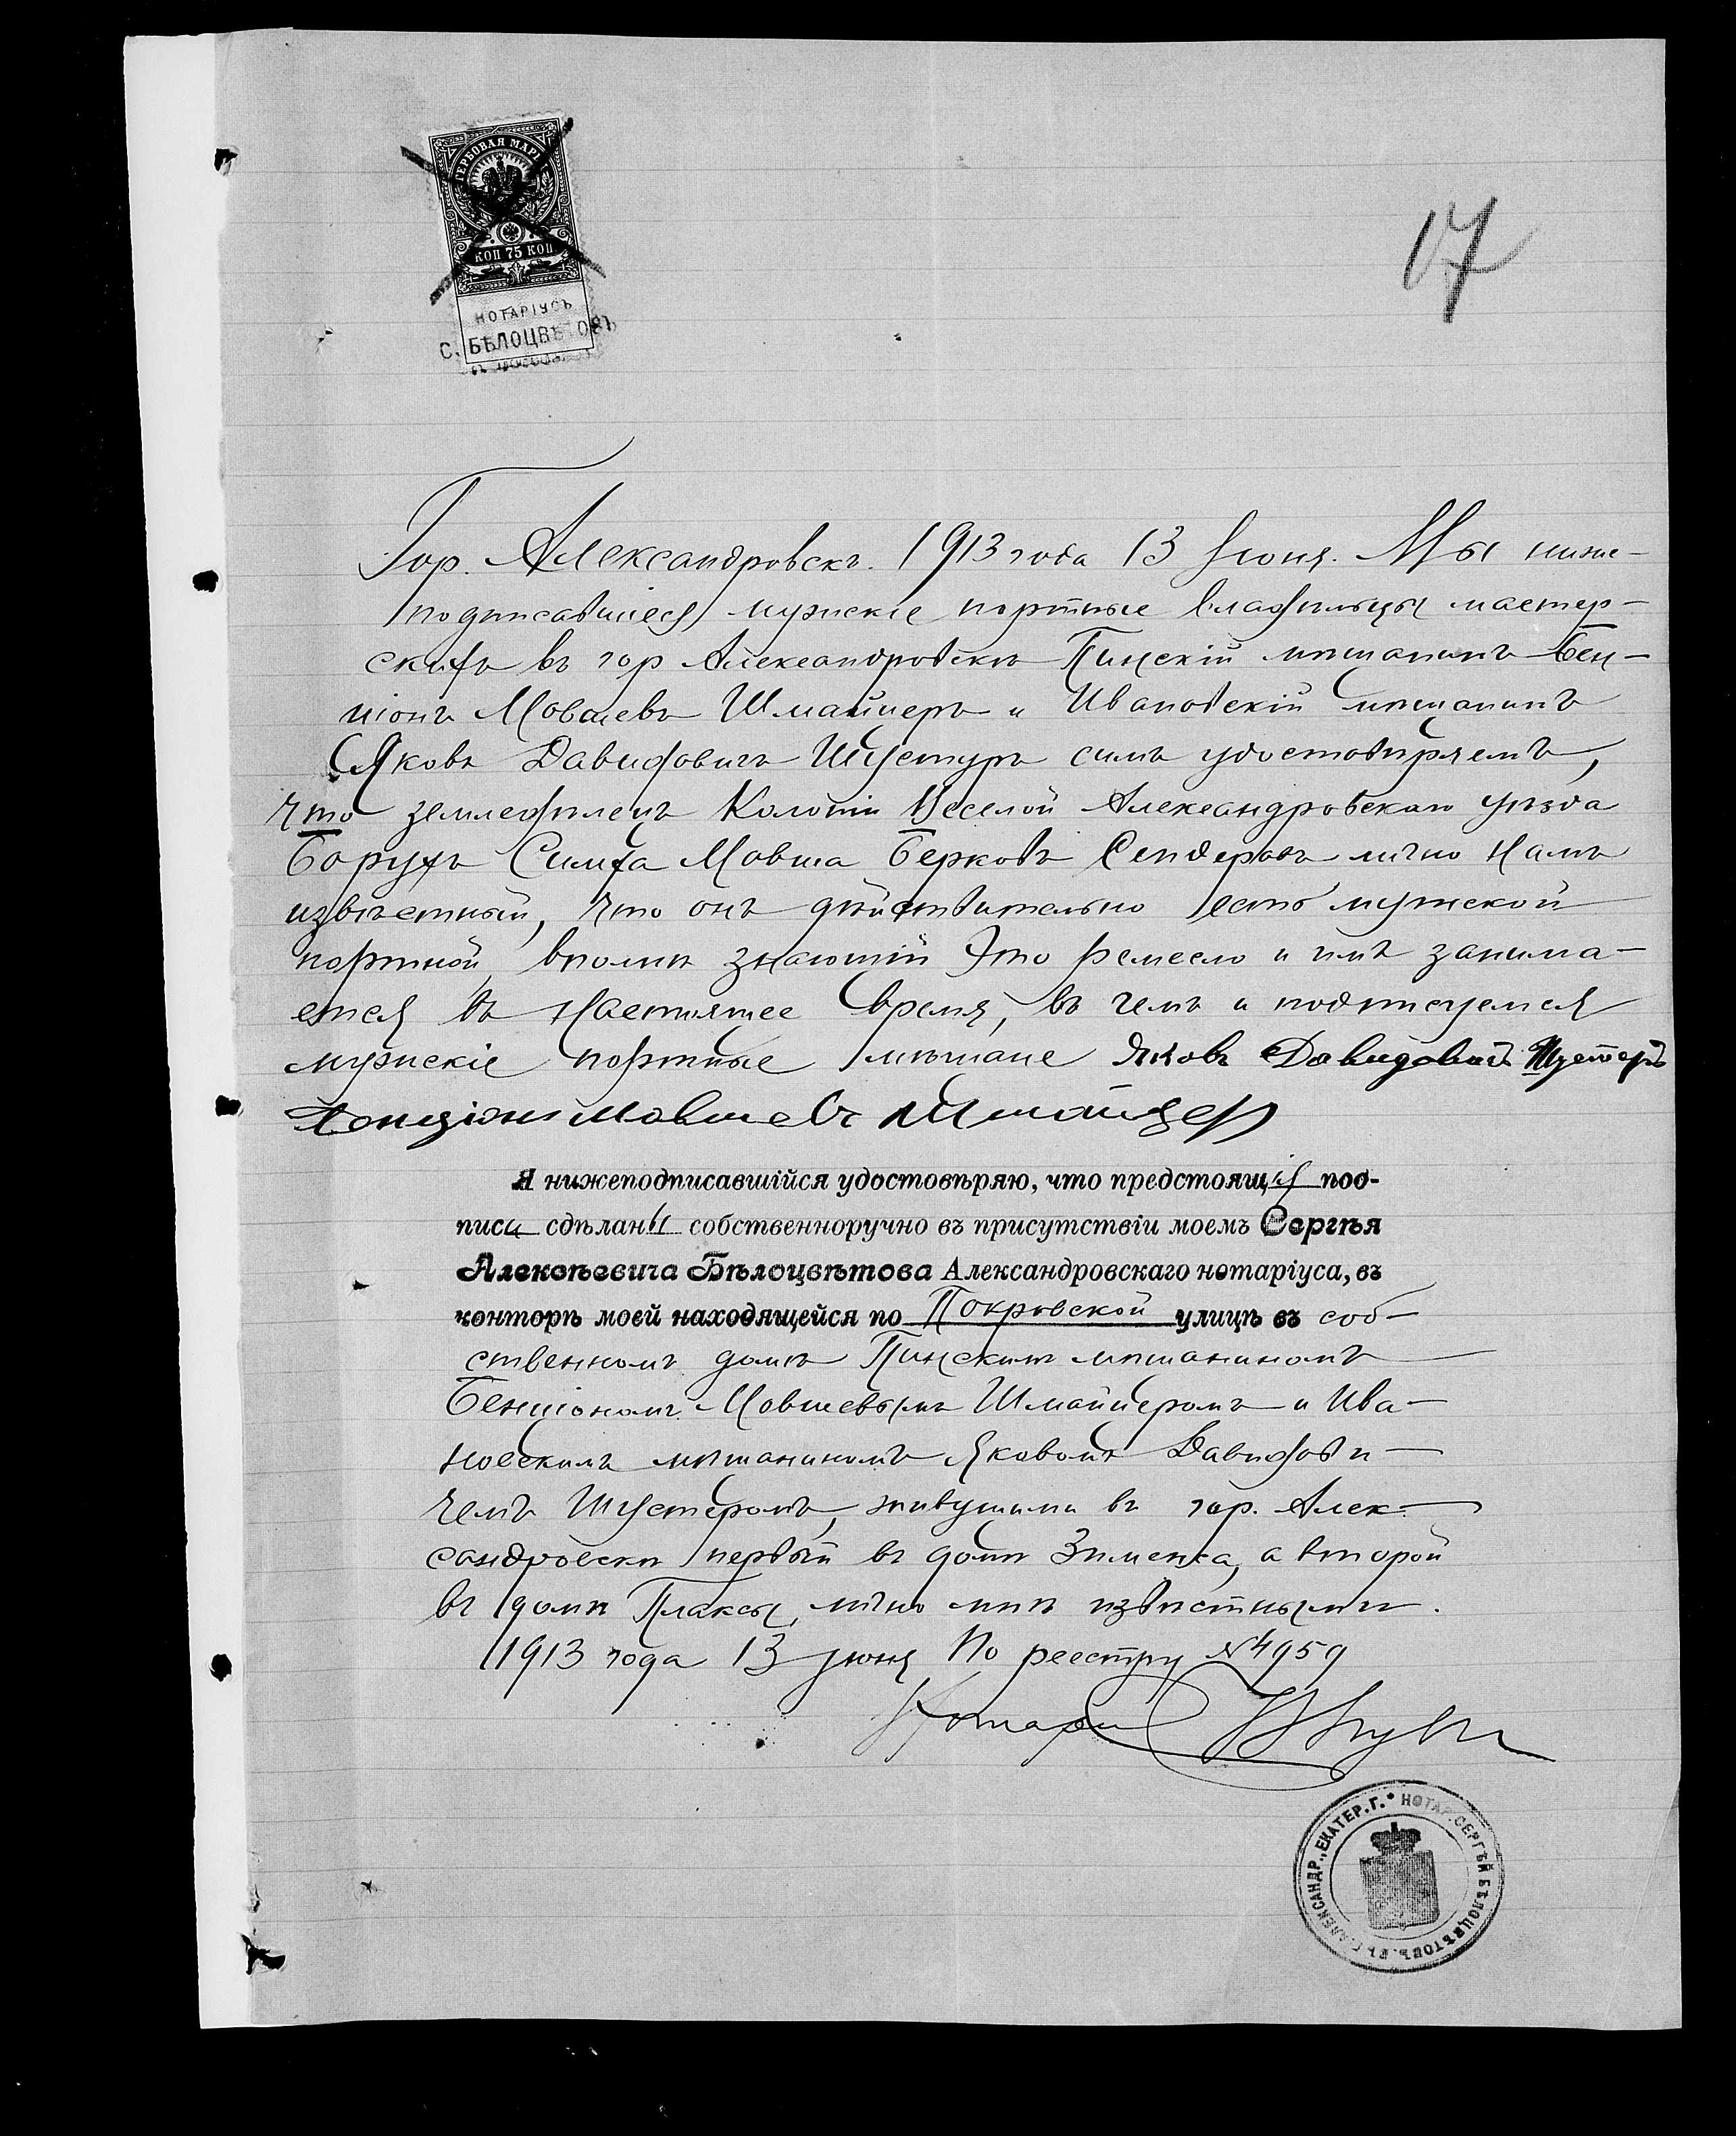 ГЕРБОВАЯ МАРК
КОП 75 КОП
НОТАРІУСЪ
С. БѢЛОЦВѢТОВЪ
17
Гор. Александровскъ. 1913 года 13 Іюня. Мы ниже-
подписавшіеся мужскіе портные владѣльцы мастер-
скихъ въ гор Александровскѣ Пинскій мѣщанинъ Бен-
ціонъ Мовшевъ Шмайцеръ и Ивановскій мѣщанинъ
Яковъ Давидовичъ Шустеръ симъ удостовѣряемъ,
что земледѣлецъ Колоніи Веселой Александровскаго уѣзда
Борухъ Симха Мовша Берковъ Сендеровъ, лично намъ
извѣстный, что онъ дѣйствительно есть мужской
портной, вполнѣ знающій это ремесло и имъ занима-
ется въ настоящее время, въ чемъ и подписуемся
мужскіе портные мѣщане Яковъ Давидовичъ Шустеръ
Бенціонъ Мовшевъ Шмайцеръ
Я нижеподписавшійся удостовѣряю, что предстоящія под-
писи сдѣланы собственноручно въ присутствіи моемъ Сергѣя
Алексѣевича Бѣлоцвѣтова Александровскаго нотаріуса, въ
конторѣ моей находящейся по Покровской улицѣ въ соб-
ственномъ домѣ Пинскимъ мѣщаниномъ
Бенціономъ Мовшевымъ Шмайцеромъ и Ива-
новскимъ мѣщаниномъ Яковомъ Давидови-
чемъ Шустеромъ, живущими въ гор. Алек-
сандровскѣ первый въ домѣ Зименса, а второй
въ домѣ Плаксы, лично мнѣ извѣстными.
1913 года 13 іюня По реестру № 4959
Нотаріусъ
НОТАР. СЕРГѢЙ БѢЛОЦВѢТОВЪ. ВЪ Г. АЛЕКСАНДР., ЕКАТЕР. Г. *